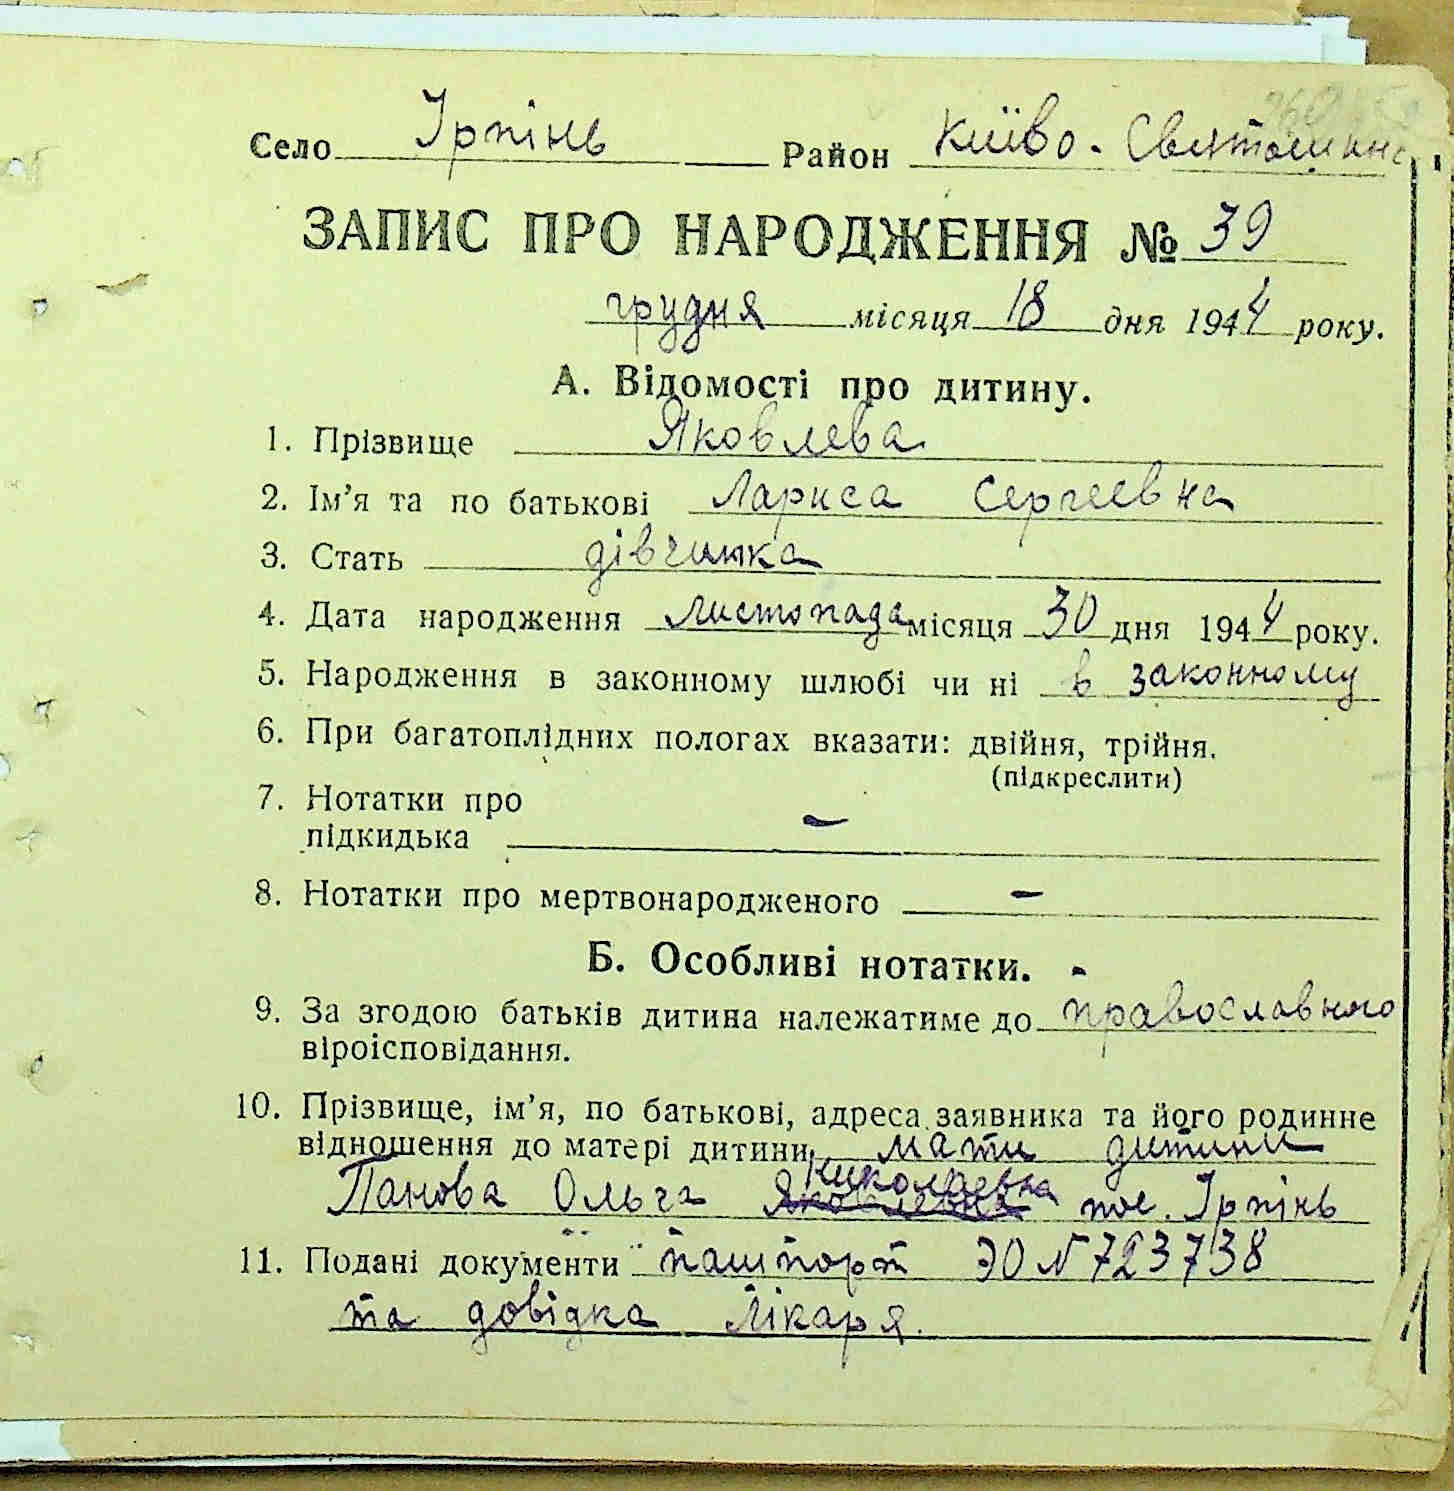 Село Ірпінь Район Київо-Святошинс
ЗАПИС ПРО НАРОДЖЕННЯ № 39
грудня місяця 18 дня 1944 року.
А. Відомості про дитину.
1. Прізвище Яковлева
2. Ім'я та по батькові Лариса Сергеевна
3. Стать дівчинка
4. Дата народження листопада місяця 30 дня 1944 року.
5. Народження в законному шлюбі чи ні в законному
6. При багатоплідних пологах вказати: двійня, трійня.
(підкреслити)
7. Нотатки про
підкидька –
8. Нотатки про мертвонародженого –
Б. Особливі нотатки. -
9. За згодою батьків дитина належатиме до православного
віроісповідання.
10. Прізвище, ім'я, по батькові, адреса заявника та його родинне
відношення до матері дитини, мати дитини
Николаевна
Панова Ольга Яковлевна пос. Ірпінь
11. Подані документи пашпорт ЭО N 723738
та довідка лікаря.